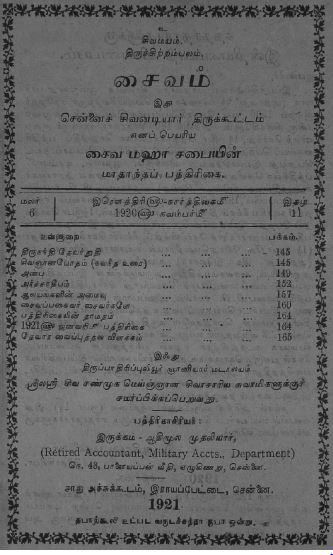 உ
சிவமயம்.
திருச்சிற்றம்பலம்.
சைவம்
இது
சென்னைச் சிவனடியார் திருக்கூட்டம்
எனப் பெயரிய
சைவ மஹா சபையின்
மாதாந்தப் பத்திரிகை.
மலர் 6 இரௌத்திரி௵-கார்த்திகைமீ 1920௵ நவம்பர்மீ இதழ் 11
உள்ளுறை பக்கம்.
திருசதி தேவர்துதி ... 145
சிவஞானபோதம் (சுவரித உரை) ... 145
அன்பு ... 149
அர்ச்சாதீபம் ... 152
ஆலயங்களின் அமைவு ... 157
சைவப்பகைவர் சைவர்களே ... 160
பத்திரிகையின் தாமதம் ... 164
1921௵ ஜனவரிமீ பத்திரிகை ... 164
தேவார வைப்புத்தல விளக்கம் ... 165
இஃது
திருப்பாதிரிப்புலியூர் ஞானியார் மடாலயம்
ஸ்ரீலஸ்ரீ சிவ சண்முக மெய்ஞ்ஞான சிவாசாரிய சுவாமிகளுக்குச்
சமர்ப்பிக்கப்பெறுவது.
பத்திராசிரியர்:
இருக்கம - ஆதிமூல முதலியார்,
(Retired Accountant, Military Accts., Department)
நெ. 48, பாளையப்பன் வீதி, ஏழுகிணறு, சென்னை.
சாது அச்சுக்கூடம், இராயப்பேட்டை, சென்னை.
1921
தபாற்கூலி உட்பட வருடச்சந்தா ரூபா ஒன்று.